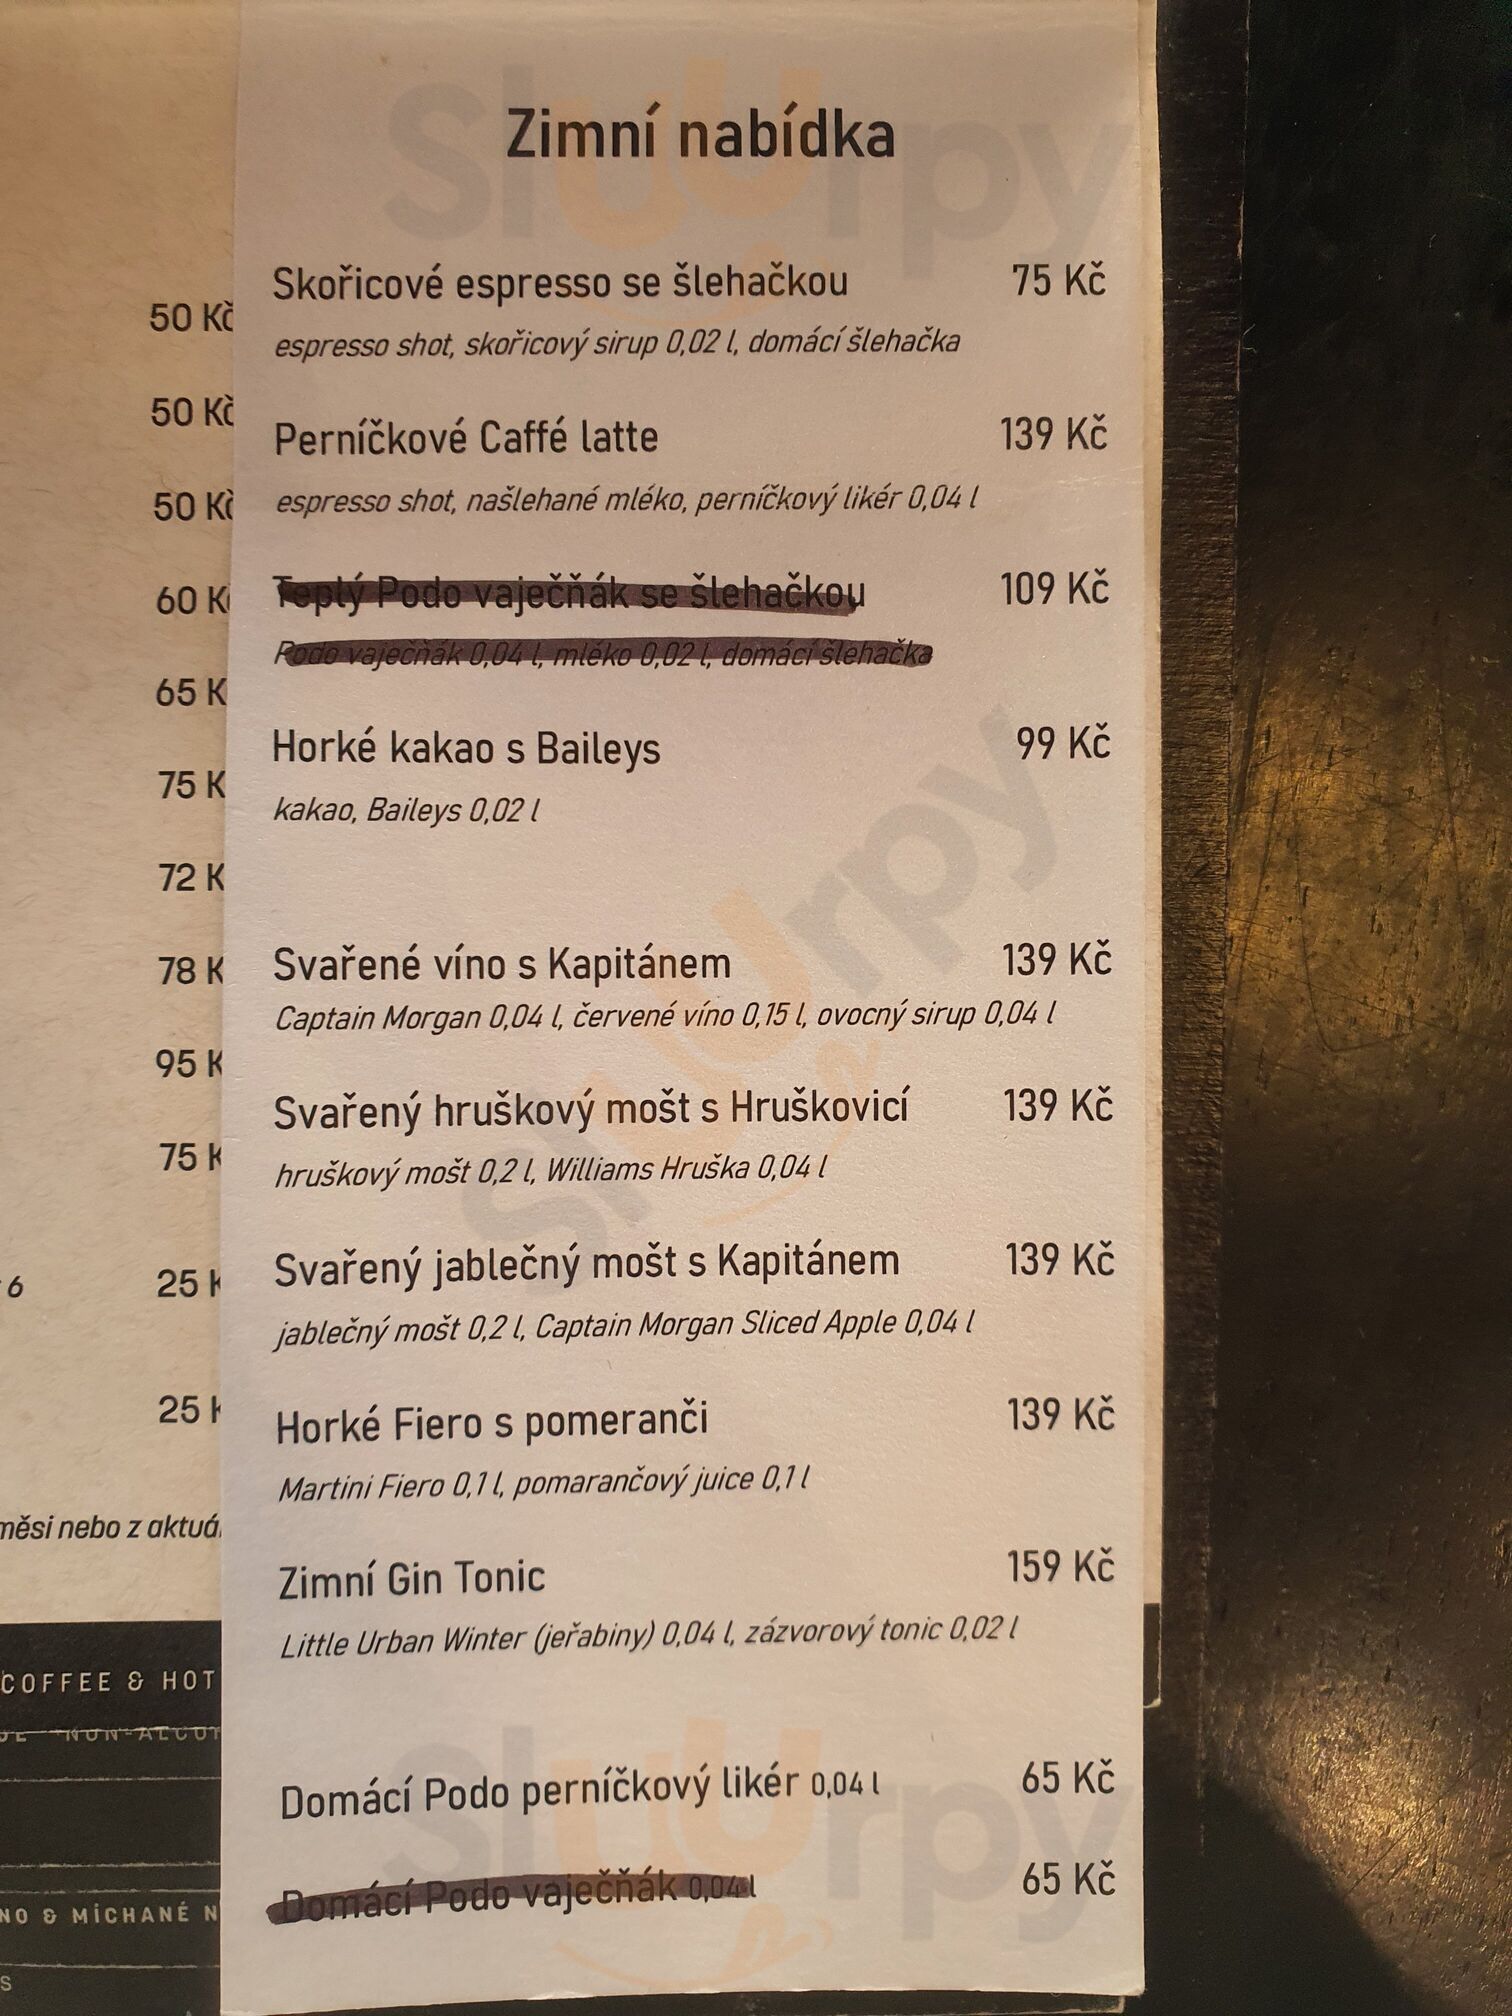 Zimní nabídka
Skořicové espresso se šlehačkou 75 Kč
espresso shot, skořicový sirup 0,02 l, domácí šlehačka
Perníčkové Caffé latte 139 Kč
espresso shot, našlehané mléko, perníčkový likér 0,04 l
Teplý Podo vaječňák se šlehačkou 109 Kč
Podo vaječňák 0,04 l, mléko 0,02 l, domácí šlehačka
Horké kakao s Baileys 99 Kč
kakao, Baileys 0,02 l
Svařené víno s Kapitánem 139 Kč
Captain Morgan 0,04 l, červené víno 0,15 l, ovocný sirup 0,04 l
Svařený hruškový mošt s Hruškovicí 139 Kč
hruškový mošt 0,2 l, Williams Hruška 0,04 l
Svařený jablečný mošt s Kapitánem 139 Kč
jablečný mošt 0,2 l, Captain Morgan Sliced Apple 0,04 l
Horké Fiero s pomeranči 139 Kč
Martini Fiero 0,1 l, pomarančový juice 0,1 l
Zimní Gin Tonic 159 Kč
Little Urban Winter (jeřabiny) 0,04 l, zázvorový tonic 0,02 l
Domácí Podo perníčkový likér 0,04 l 65 Kč
Domácí Podo vaječňák 0,04 l 65 Kč
50 Kč
50 Kč
50 Kč
60 K
65 K
75 K
72 K
78 K
95 K
75 K
6 25 K
25 K
měsi nebo z aktuá
COFFEE & HOT
NON-ALCO
NO & MÍCHANÉ N
S
Sluurpy
Sluurpy
Sluurpy